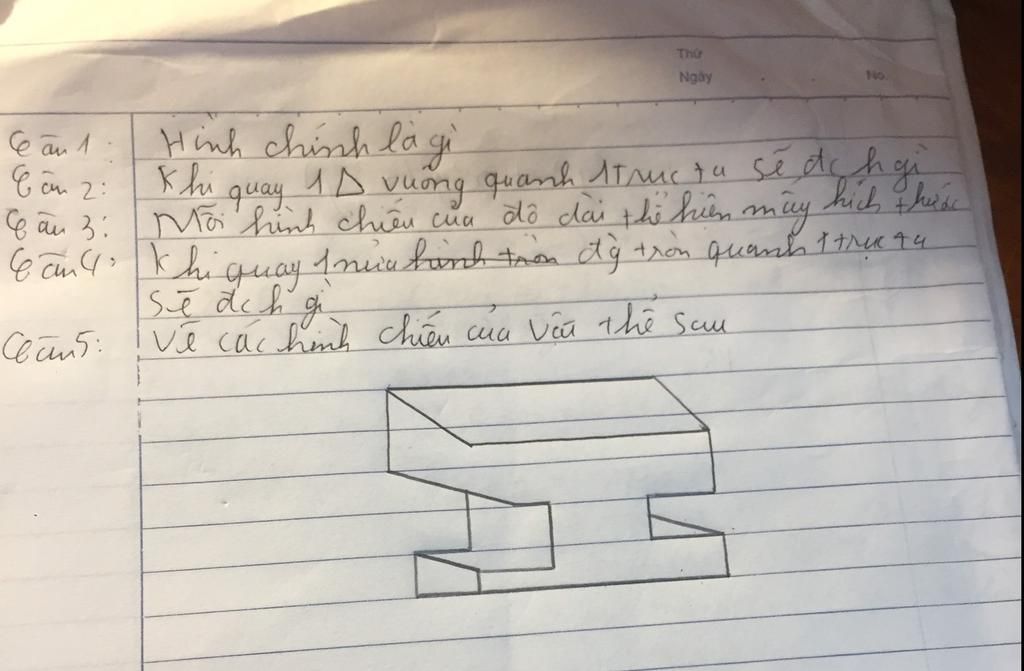 Thứ
Ngày . . No.
Câu 1: Hình chính là gì
Câu 2: Khi quay 1 Δ vuông quanh 1 trục ta sẽ đc h gì
Câu 3: Mỗi hình chiếu của đồ dài thể hiện mấy kích thước
Câu 4: Khi quay 1 nửa hình tròn đg tròn quanh 1 trục ta
sẽ đc h gì
Câu 5: Vẽ các hình chiếu của vâu thể sau